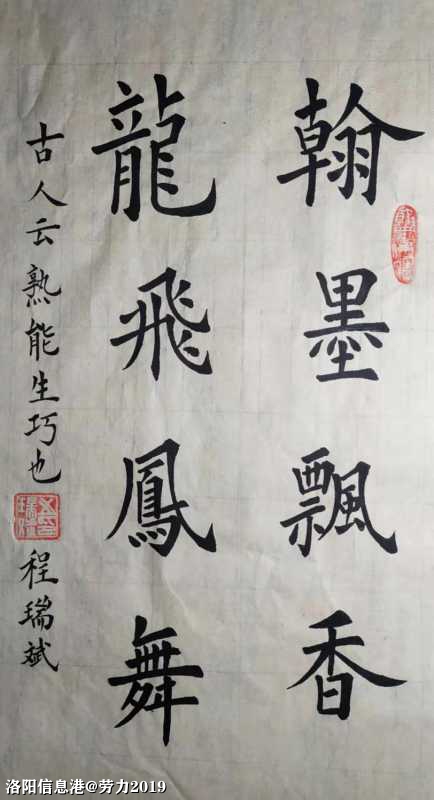 翰墨飄香
龍飛鳳舞
古人云熟能生巧也
程瑞斌
洛阳信息港@劳力2019